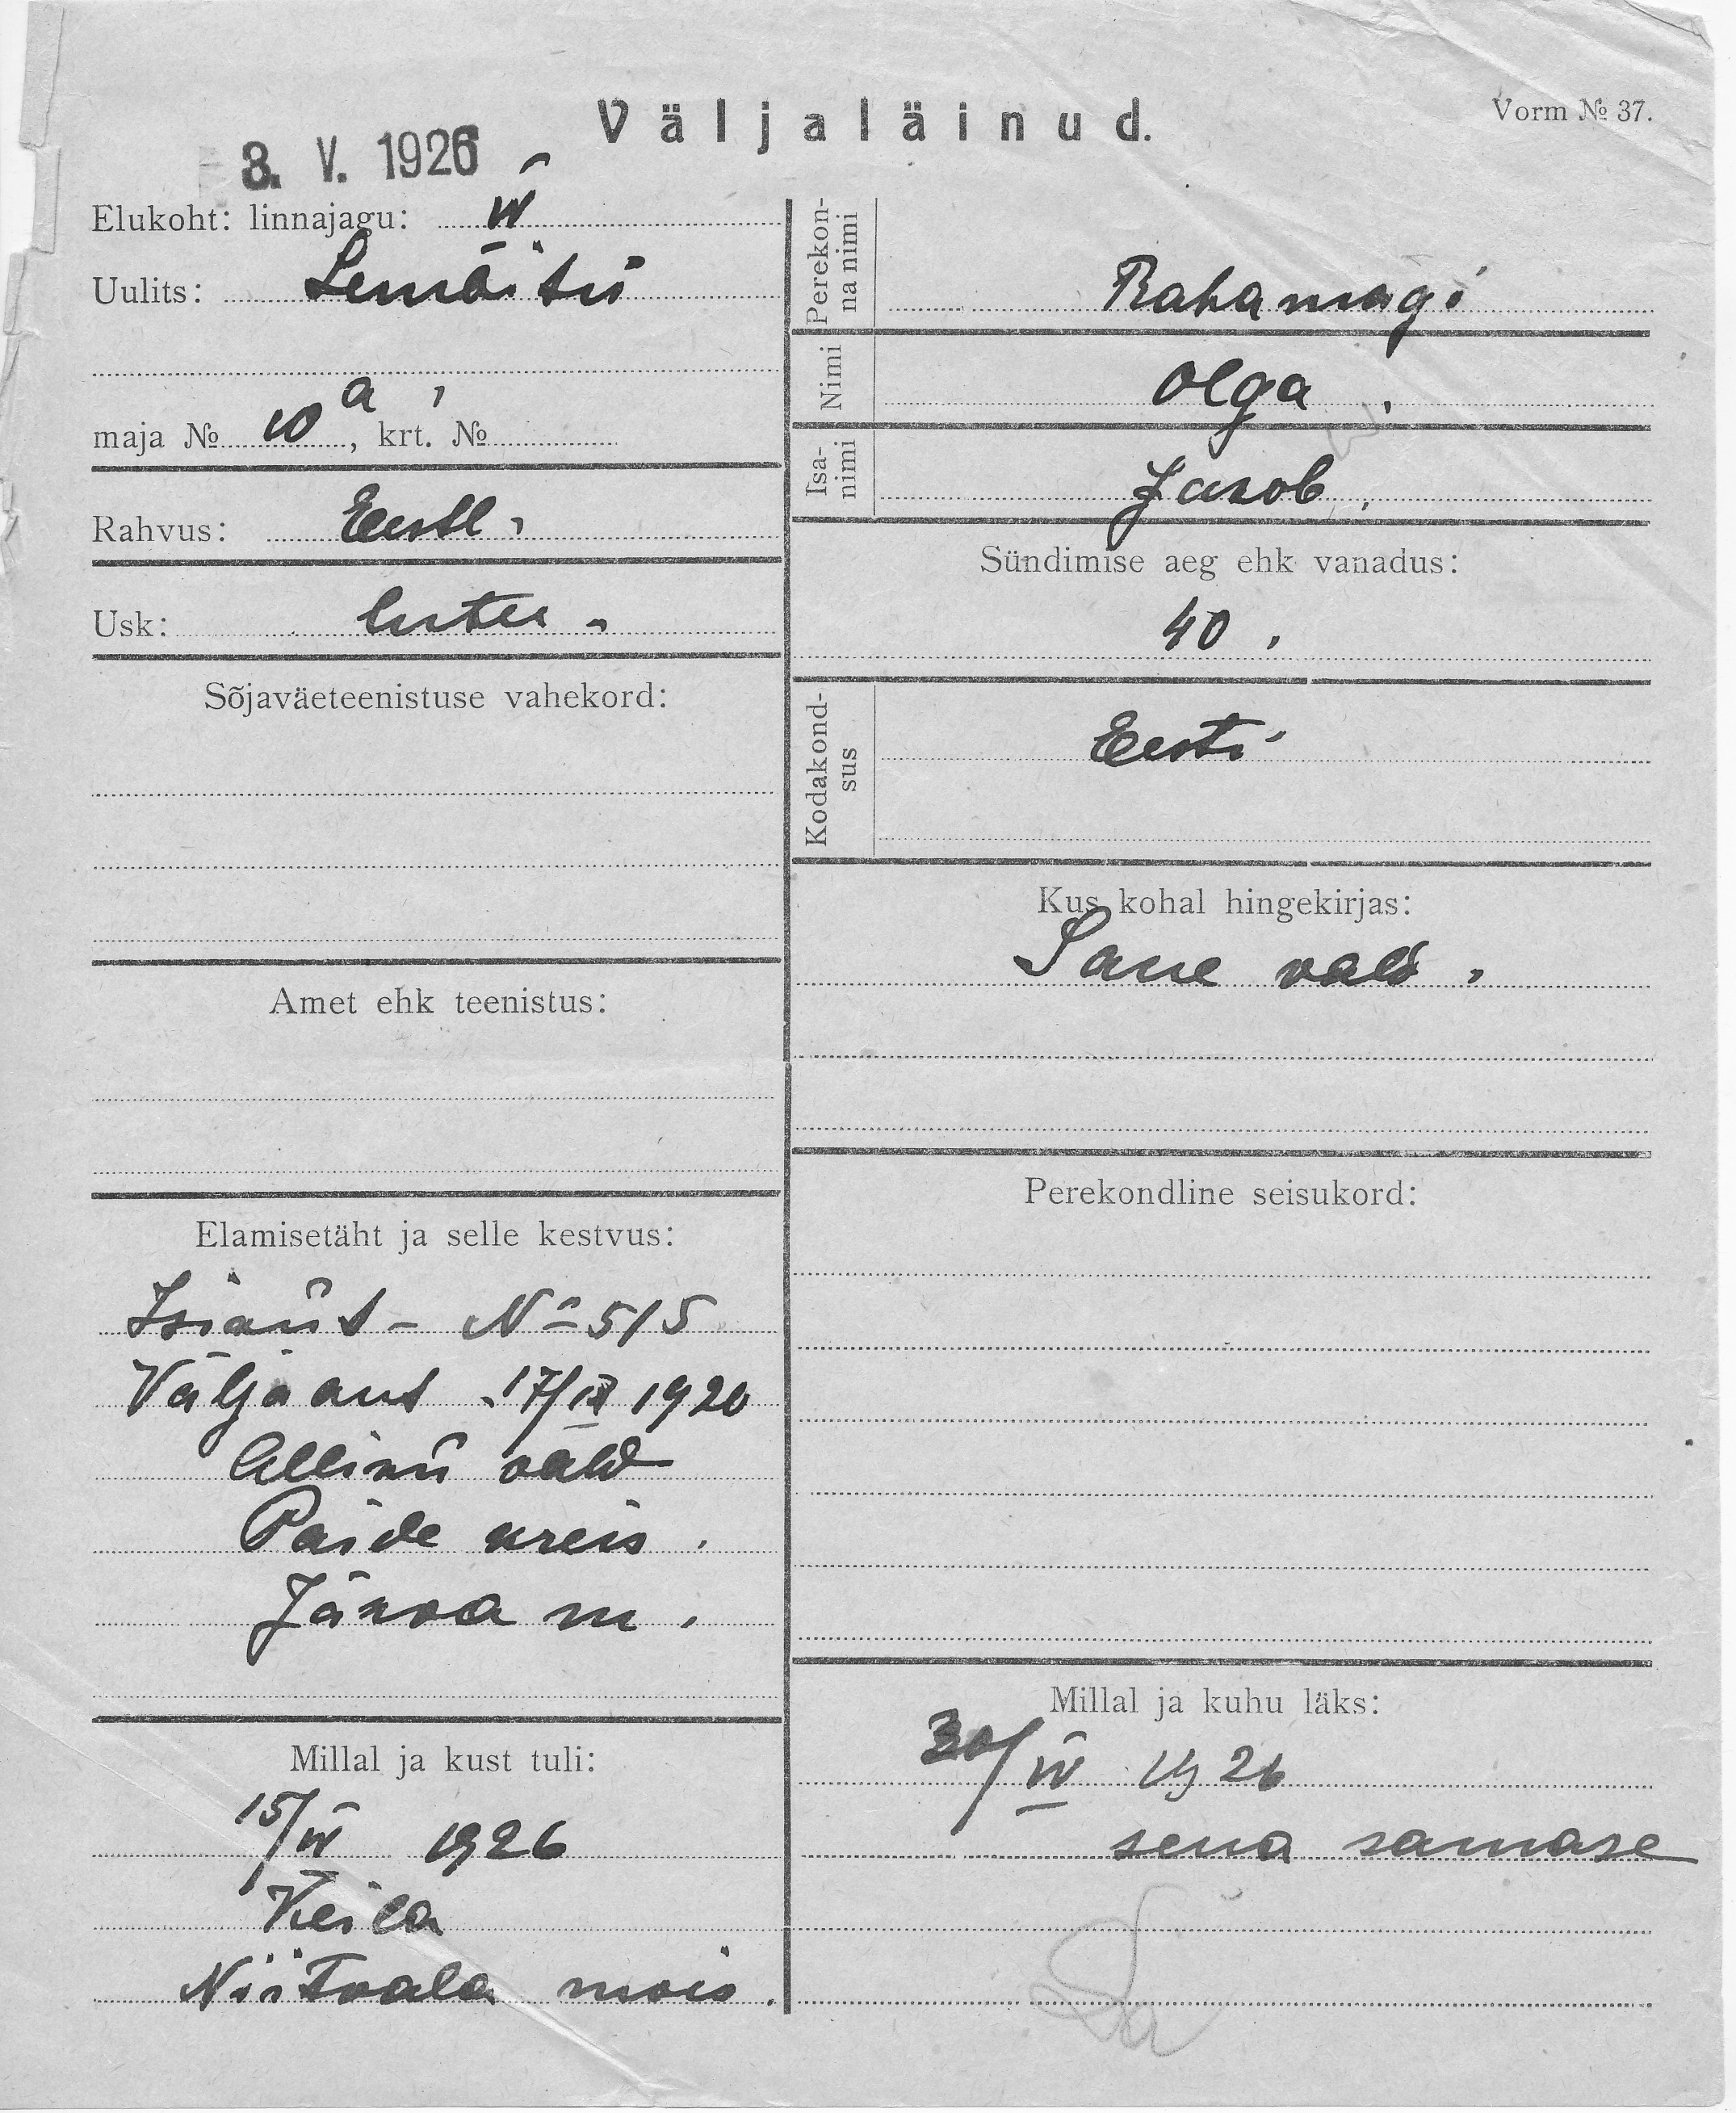 Väljaläinud.
Vorm № 37.
3. V. 1926
Elukoht: linnajagu: IV
Uulits:
maja № 10 a, krt. №
Rahvus: Eestl.
Usk: luteu.
Sõjaväeteenistuse vahekord:
Amet ehk teenistus:
Elamisetäht ja selle kestvus:
Isiküt - № 515
Väljaant 17/IX 1920
Alliku vald
Paide kreis.
Järva m.
Millal ja kust tuli:
15/IV 1926
Keila
Niitvala mois.
Perekonna nimi
Rahamägi
Nimi
Olga.
Isanimi
Jakob.
Sündimise aeg ehk vanadus:
40.
Kodakondsus
Eesti
Kus kohal hingekirjas:
Saue vald.
Perekondline seisukord:
Millal ja kuhu läks:
30/IV 1926
sena samase